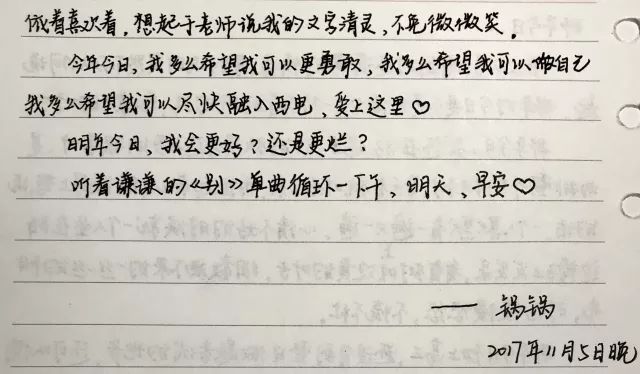 做着喜欢着，想起于老师说我的文字清灵，不免微微笑。
今年今日，我多么希望我可以更勇敢，我多么希望我可以做自己
我多么希望我可以尽快融入西电，爱上这里♡
明年今日，我会更好？还是更烂？
听着谦谦的《别》单曲循环一下午，明天，早安♡
—— 锅锅
2017年11月5日晚